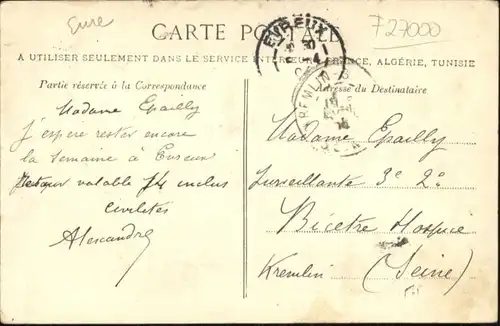 Eure
CARTE POSTALE
F27000
EVREUX
A UTILISER SEULEMENT DANS LE SERVICE INTÉRIEUR, FRANCE, ALGÉRIE, TUNISIE
Partie réservée à la Correspondance
Adresse du Destinataire
KREMLIN-B
Madame Epailly
J'espere rester encore
la semaine à Evreux
Retour valable 14 inclus
Civilités
Alexandre
Madame Epailly
Surveillante 3e 2e
Bicetre Hospice
Kremlin (Seine)